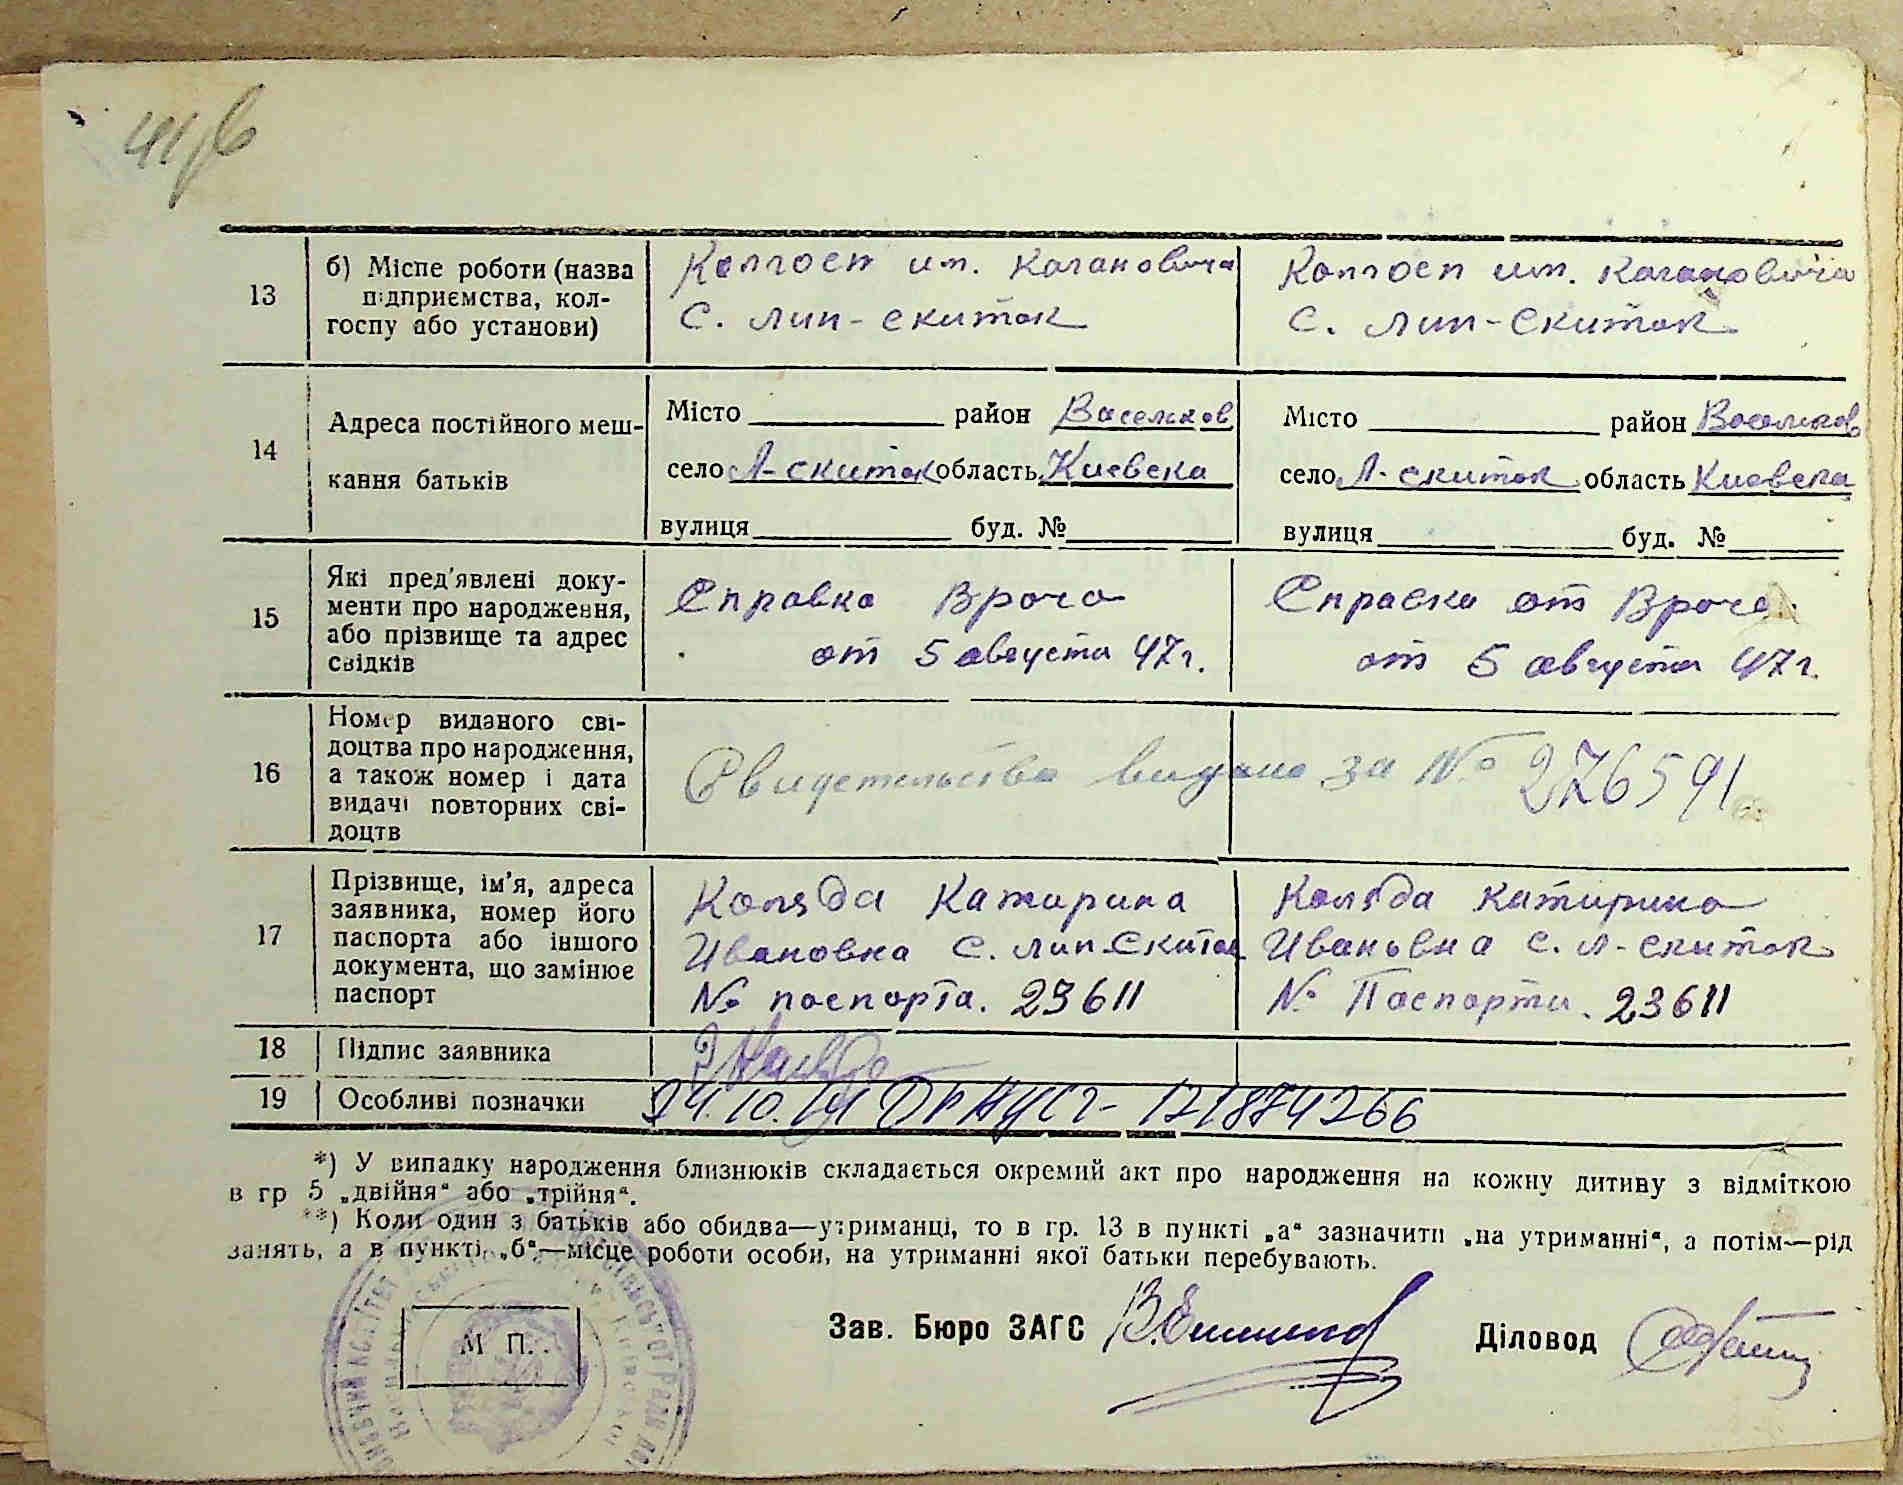 13
б) Місце роботи (назва
підприємства, кол-
госпу або установи)
Колгосп им. Кагановича
С. Лип-Скиток
Колгосп им. Кагановича
С. Лип-Скиток
14
Адреса постійного меш-
кання батьків
Місто район Васельков
село Л-Скиток область Киевска
вулиця буд. №
Місто район Васельков
село Л-Скиток область Киевска
вулиця буд. №
15
Які пред'явлені доку-
менти про народження,
або прізвище та адрес
свідків
Справка Врача
от 5 августа 47г.
Справка от Врача
от 5 августа 47г.
16
Номер виданого сві-
доцтва про народження,
а також номер і дата
видачі повторних сві-
доцтв
Свидетельство видано за № 276591
17
Прізвище, ім'я, адреса
заявника, номер його
паспорта або іншого
документа, що замінює
паспорт
Коляда Катирина
Ивановна С. Лип-Скиток
№ паспорта. 23611
Коляда Катирина
Ивановна С. Л-Скиток
№ Паспорта. 23611
18
Підпис заявника
19
Особливі позначки
*) У випадку народження близнюків складається окремий акт про народження на кожну дитину з відміткою
в гр 5 „двійня“ або „трійня“.
**) Коли один з батьків або обидва—утриманці, то в гр. 13 в пункті „а“ зазначити „на утриманні“, а потім—рід
занять, а в пункті „б“—місце роботи особи, на утриманні якої батьки перебувають.
М П.
Зав. Бюро ЗАГС
Діловод